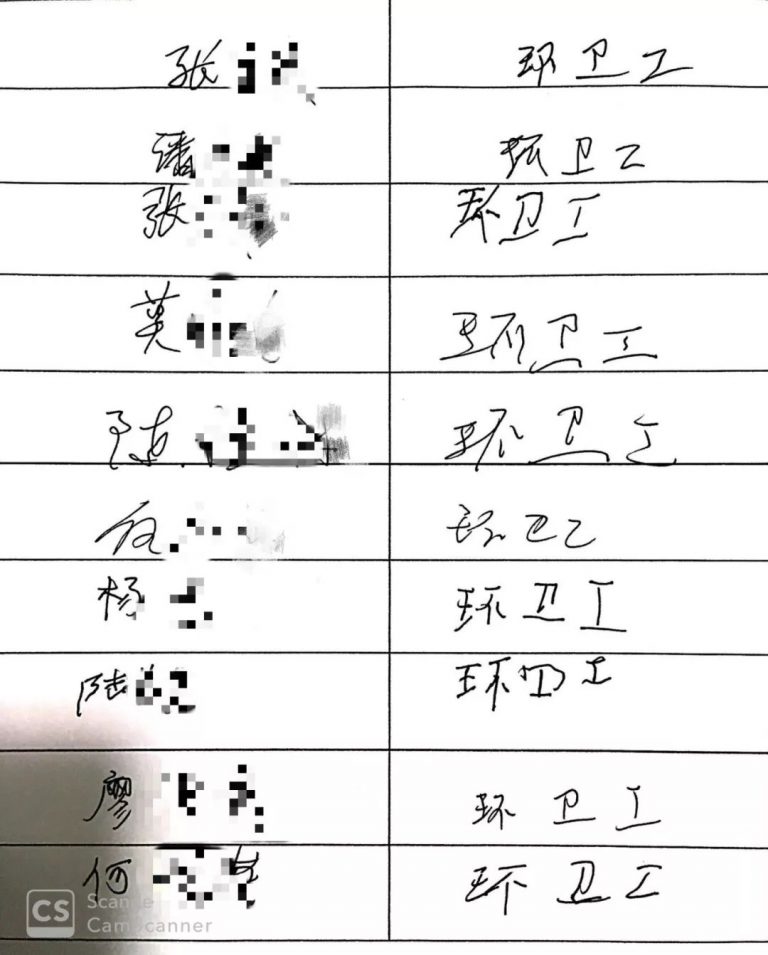 张 环卫工
潘 环卫工
张 环卫工
莫 环卫工
陆 环卫工
环卫工
杨 环卫工
陆 环卫工
廖 环卫工
何 环卫工
CS
CamScanner